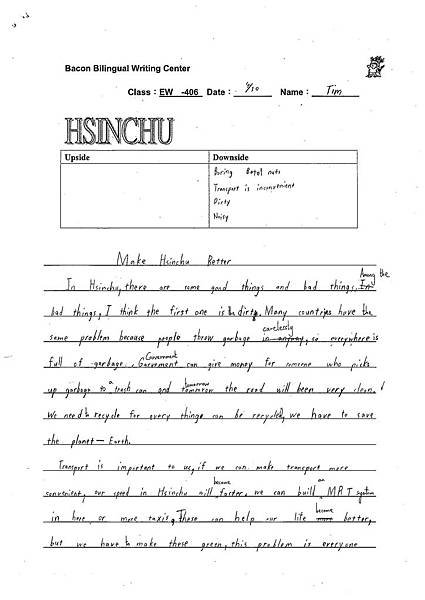 Bacon Bilingual Writing Center
Class : EW -406 Date : 4/10 Name : Tim
HSINCHU
Upside Downside
Boring Betel nuts
Transport is inconvenient
Dirty
Noisy
Make Hsinchu Better
In Hsinchu, there are some good things and bad things. Among the
bad things, I think the first one is the dirty. Many countries have the
same problem because people throw garbage carelessly, so everywhere is
full of garbage. Government can give money for someone who picks
up garbage to a trash can and tomorrow the road will been very clean.
We need to recycle for every things can be recycled, we have to save
the planet — Earth.
Transport is important to us, if we can make transport more
convenient, our speed in Hsinchu will become faster. we can build an MRT system
in here, or more taxis, These can help our life become better,
but we have to make these green, this problem is everyone